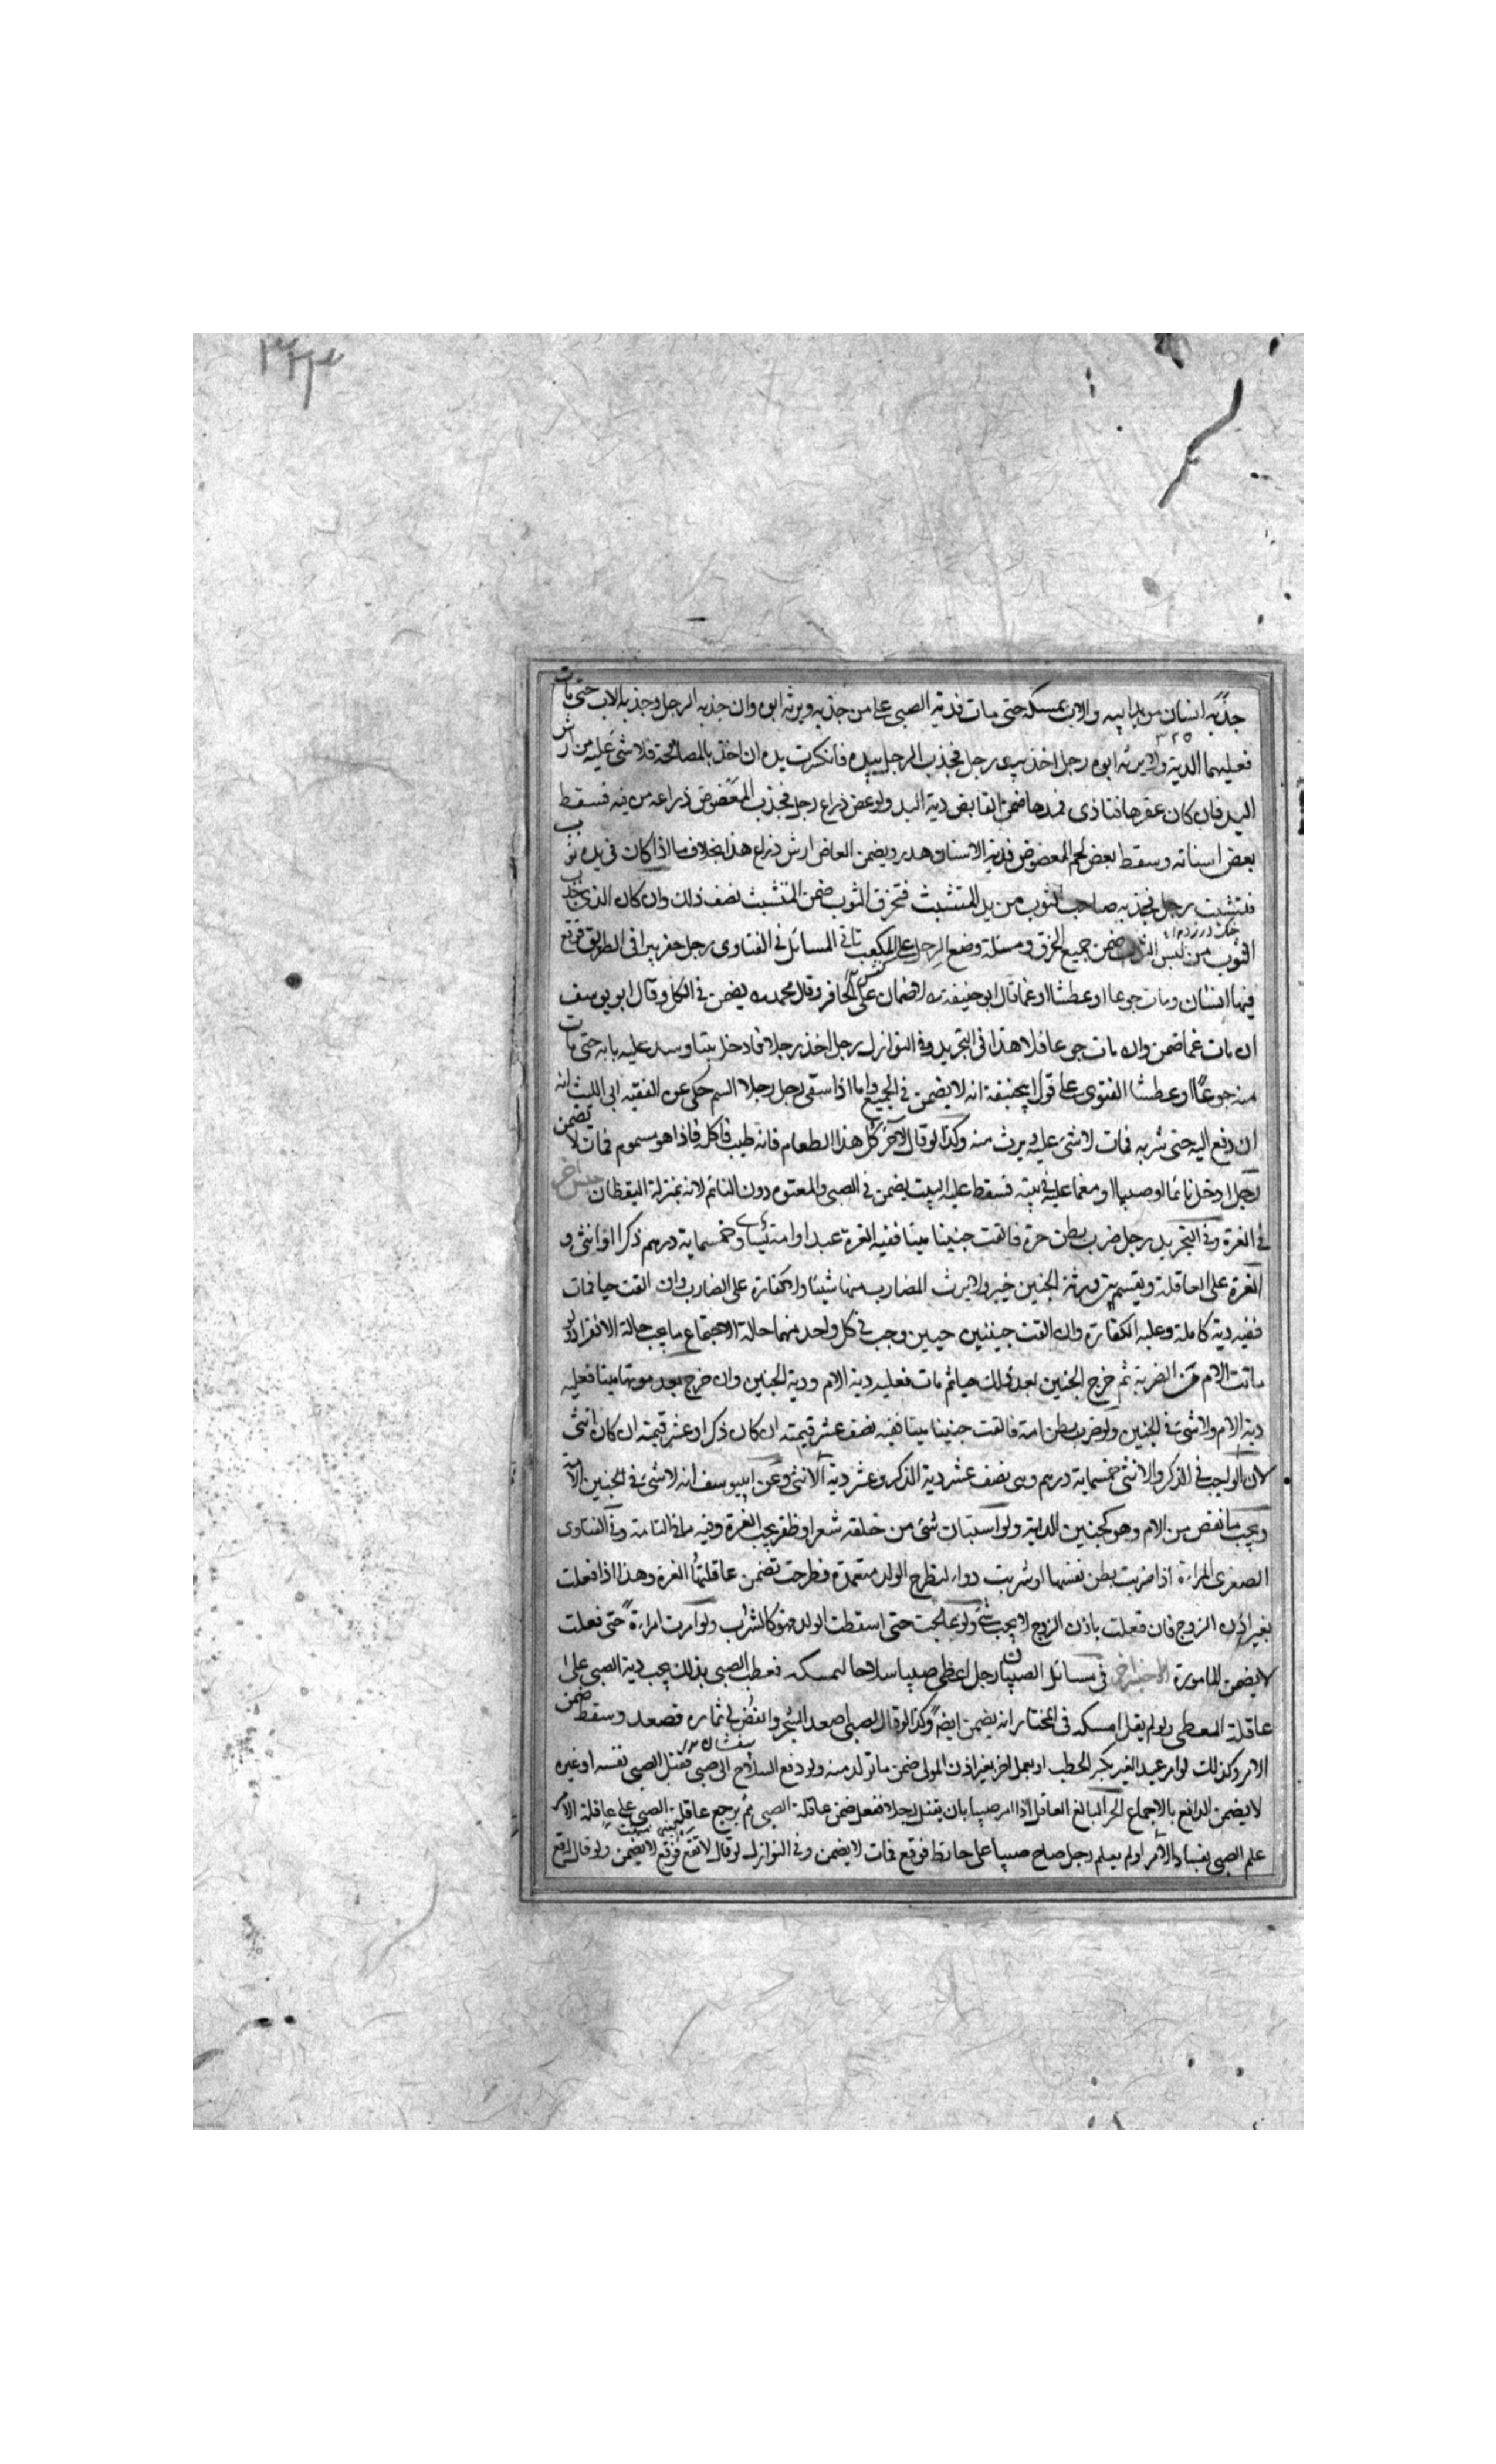 جذبه انسان من يد ابيه والاب يمسكه حتى مات فدية الصبى على من جذبه ويرثه ابوه وان جذبه الرجل وجذبه الاب حتى مات
فعليهما الدية ولا يرثه ابوه رجل اخذ يد رجل فجذب الرجل يده فانكسرت يده ان اخذ بالمصافحة فلا شئ عليه من ارش
اليد فان كان عقرها فتاذى فمدها ضمن القابض دية اليد ولو عض ذراع رجل فجذب المعضوض ذراعه من فيه فسقط
بعض اسنانه وسقط بعض لحم المعضوض فدية الاسنان هدر ويضمن العاض ارش ذراع هذا بخلاف ما اذا كان فى يده ثوب
فتشبث رجل فجذبه صاحب الثوب من يد المتشبث فتخرق الثوب ضمن المتشبث نصف ذلك وان كان الذى جذب
الثوب من لبس الثوب ضمن جميع الخرق ومسئلة وضع الرجل على المكعب تاتى المسائل فى الفتاوى رجل حفر بيرا فى الطريق فوقع
فيها انسان ومات جوعا او عطشا او غما قال ابو حنيفة ره لا ضمان على الحافر وقال محمد ره يضمن فى الكل وقال ابو يوسف
ان مات غما ضمن وان مات جوعا فلا هذا فى التجريد وفى النوازل رجل اخذ رجلا فادخل بيتا وسد عليه بابه حتى مات
منه جوعًا او عطشا الفتوى على قول ابيحنيفة انه لا يضمن فى الجميع واما اذا سقى رجل رجلا السم حكى عن الفقيه ابى الليث انه
ان دفع اليه حتى شربه فمات لا شئ عليه ويرث منه وكذا لو قال لآخر كل هذا الطعام فانه طيب فاكله فاذا هو مسموم فمات لا يضمن
رجل ادخل نائما او صبيا او مغما عليه فى بيته فسقط عليه البيت يضمن فى الصبى والمعتوه دون النائم لانه بمنزلة اليقظان جنس آخر
فى الغرة وفى التجريد رجل ضرب بطن حرة فالقت جنينا ميتا ففيه الغرة عبد او امة يساوى خمسماية درهم ذكرا او انثى و
الغرة على العاقلة ويقسم بين ورثة الجنين ولا يرث الضارب منها شيئا ولا كفارة على الضارب وان القت حيا فمات
ففيه دية كاملة وعليه الكفارة وان القت جنينين حيين وجب فى كل واحد منهما حالة الاجتماع ما يجب حالة الانفراد ولو
ماتت الام من الضربة ثم خرج الجنين بعد ذلك حيا ثم مات فعليه دية الام ودية الجنين وان خرج بعد موتها ميتا فعليه
دية الام ولا شئ فى الجنين ولو ضرب بطن امة فالقت جنينا ميتا ففيه نصف عشر قيمته ان كان ذكرا وعشر قيمته ان كان انثى
لان الواجب فى الذكر والانثى خمسماية درهم وهى نصف عشر دية الذكر وعشر دية الانثى وعن ابيوسف انه لا شئ فى الجنين الامة
ويجب ما نقص من الام وهو كجنين الدابة ولو استبان شئ من خلقه شعر او ظفر يجب الغرة وفيه ما فى التامة وفى الفتاوى
الصغرى المراة اذا ضربت بطن نفسها او شربت دواء لتطرح الولد متعمدة فطرحت تضمن عاقلتها الغرة وهذا اذا فعلت
بغير اذن الزوج فان فعلت باذن الزوج لا يجب شئ ولو عالجت حتى اسقطت الولد فهو كالشرب ولو امرت امراة حتى فعلت
لا يضمن المامورة فى مسائل الصبيان رجل اعطى صبيا سلاحا ليمسكه فعطب الصبى بذلك يجب دية الصبى على
عاقلة المعطى ولو لم يقل امسكه فى المختار انه يضمن ايضا وكذا لو قال للصبى اصعد الشجر وانفض لى ثماره فصعد وسقط ضمن
الامر وكذلك لو امر عبد الغير بكسر الحطب او بعمل آخر بغير اذن المولى ضمن ما تولد منه ولو دفع السلاح الى صبى فقتل الصبى نفسه او غيره
لا يضمن الدافع بالاجماع الحر البالغ العاقل اذا امر صبيا بان يقتل رجلا فقتل ضمن عاقلة الصبى ثم يرجع عاقلة الصبى على عاقلة الامر
علم الصبى بفساد الامر او لم يعلم رجل صاح صبيا على حائط فوقع فمات لا يضمن وفى النوازل لو قال لا تقع فوقع لا يضمن ولو قال قع